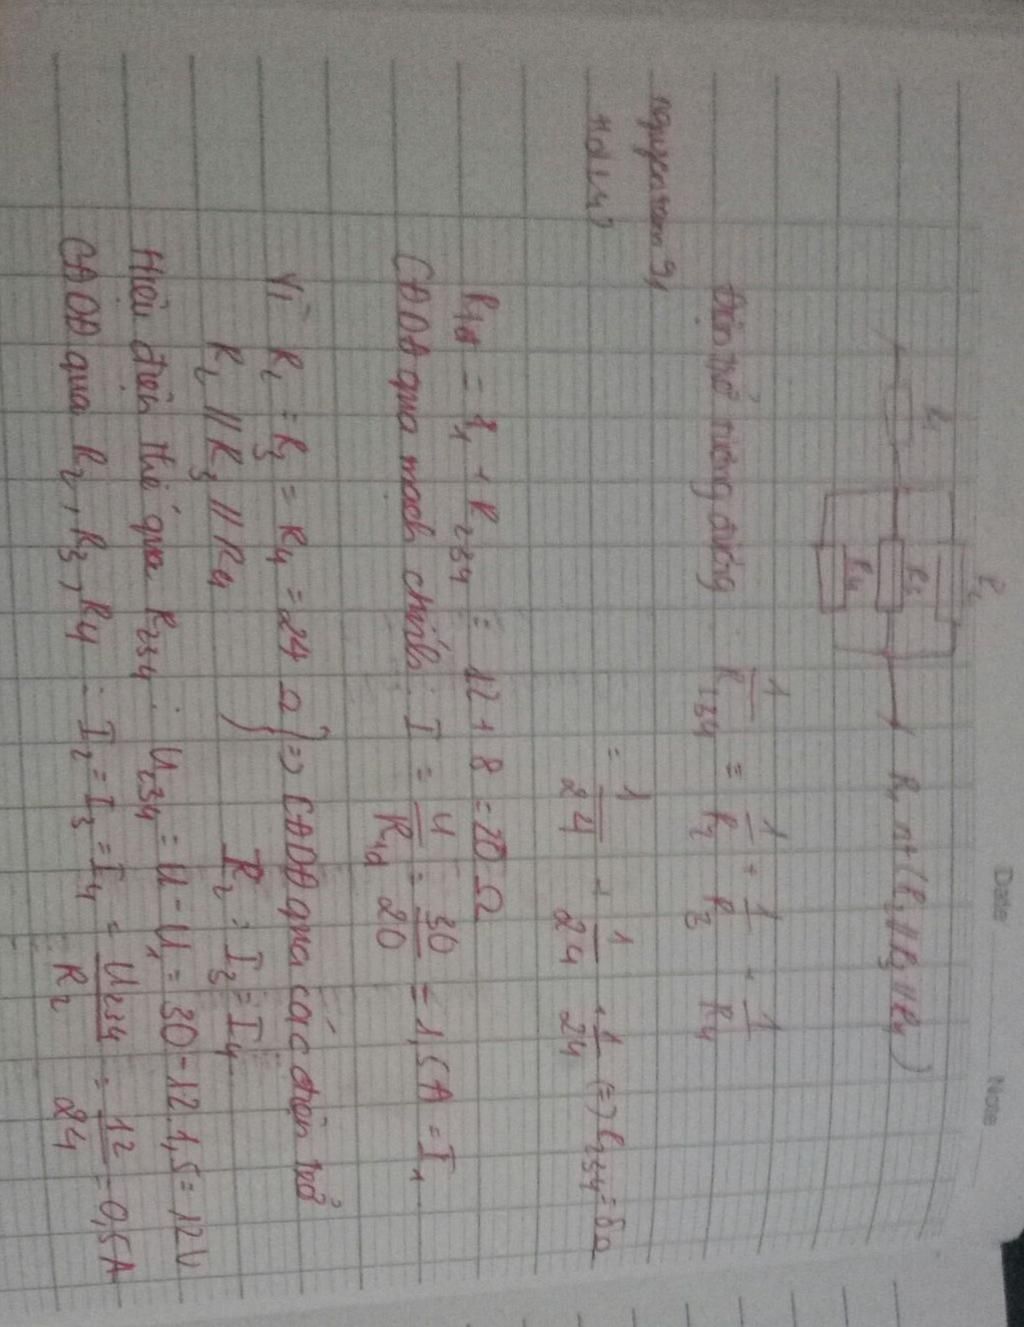 Date
Note
R1
R2
R3
R4
R1 nt (R2 // R3 // R4)
Điện trở tương đương 1/R234 = 1/R2 + 1/R3 + 1/R4
= 1/24 + 1/24 + 1/24 => R234 = 8Ω
Rtđ = R1 + R234 = 12 + 8 = 20 Ω
CĐDĐ qua mạch chính : I = U/Rtđ = 30/20 = 1,5A = I1
Vì R2 = R3 = R4 = 24 Ω } => CĐDĐ qua các điện trở
R2 // R3 // R4 : I3 = I4
Hiệu điện thế qua R234 : U234 = U - U1 = 30 - 12.1,5 = 12V
CĐDĐ qua R2, R3, R4 : I2 = I3 = I4 = U234/R2 = 12/24 = 0,5A